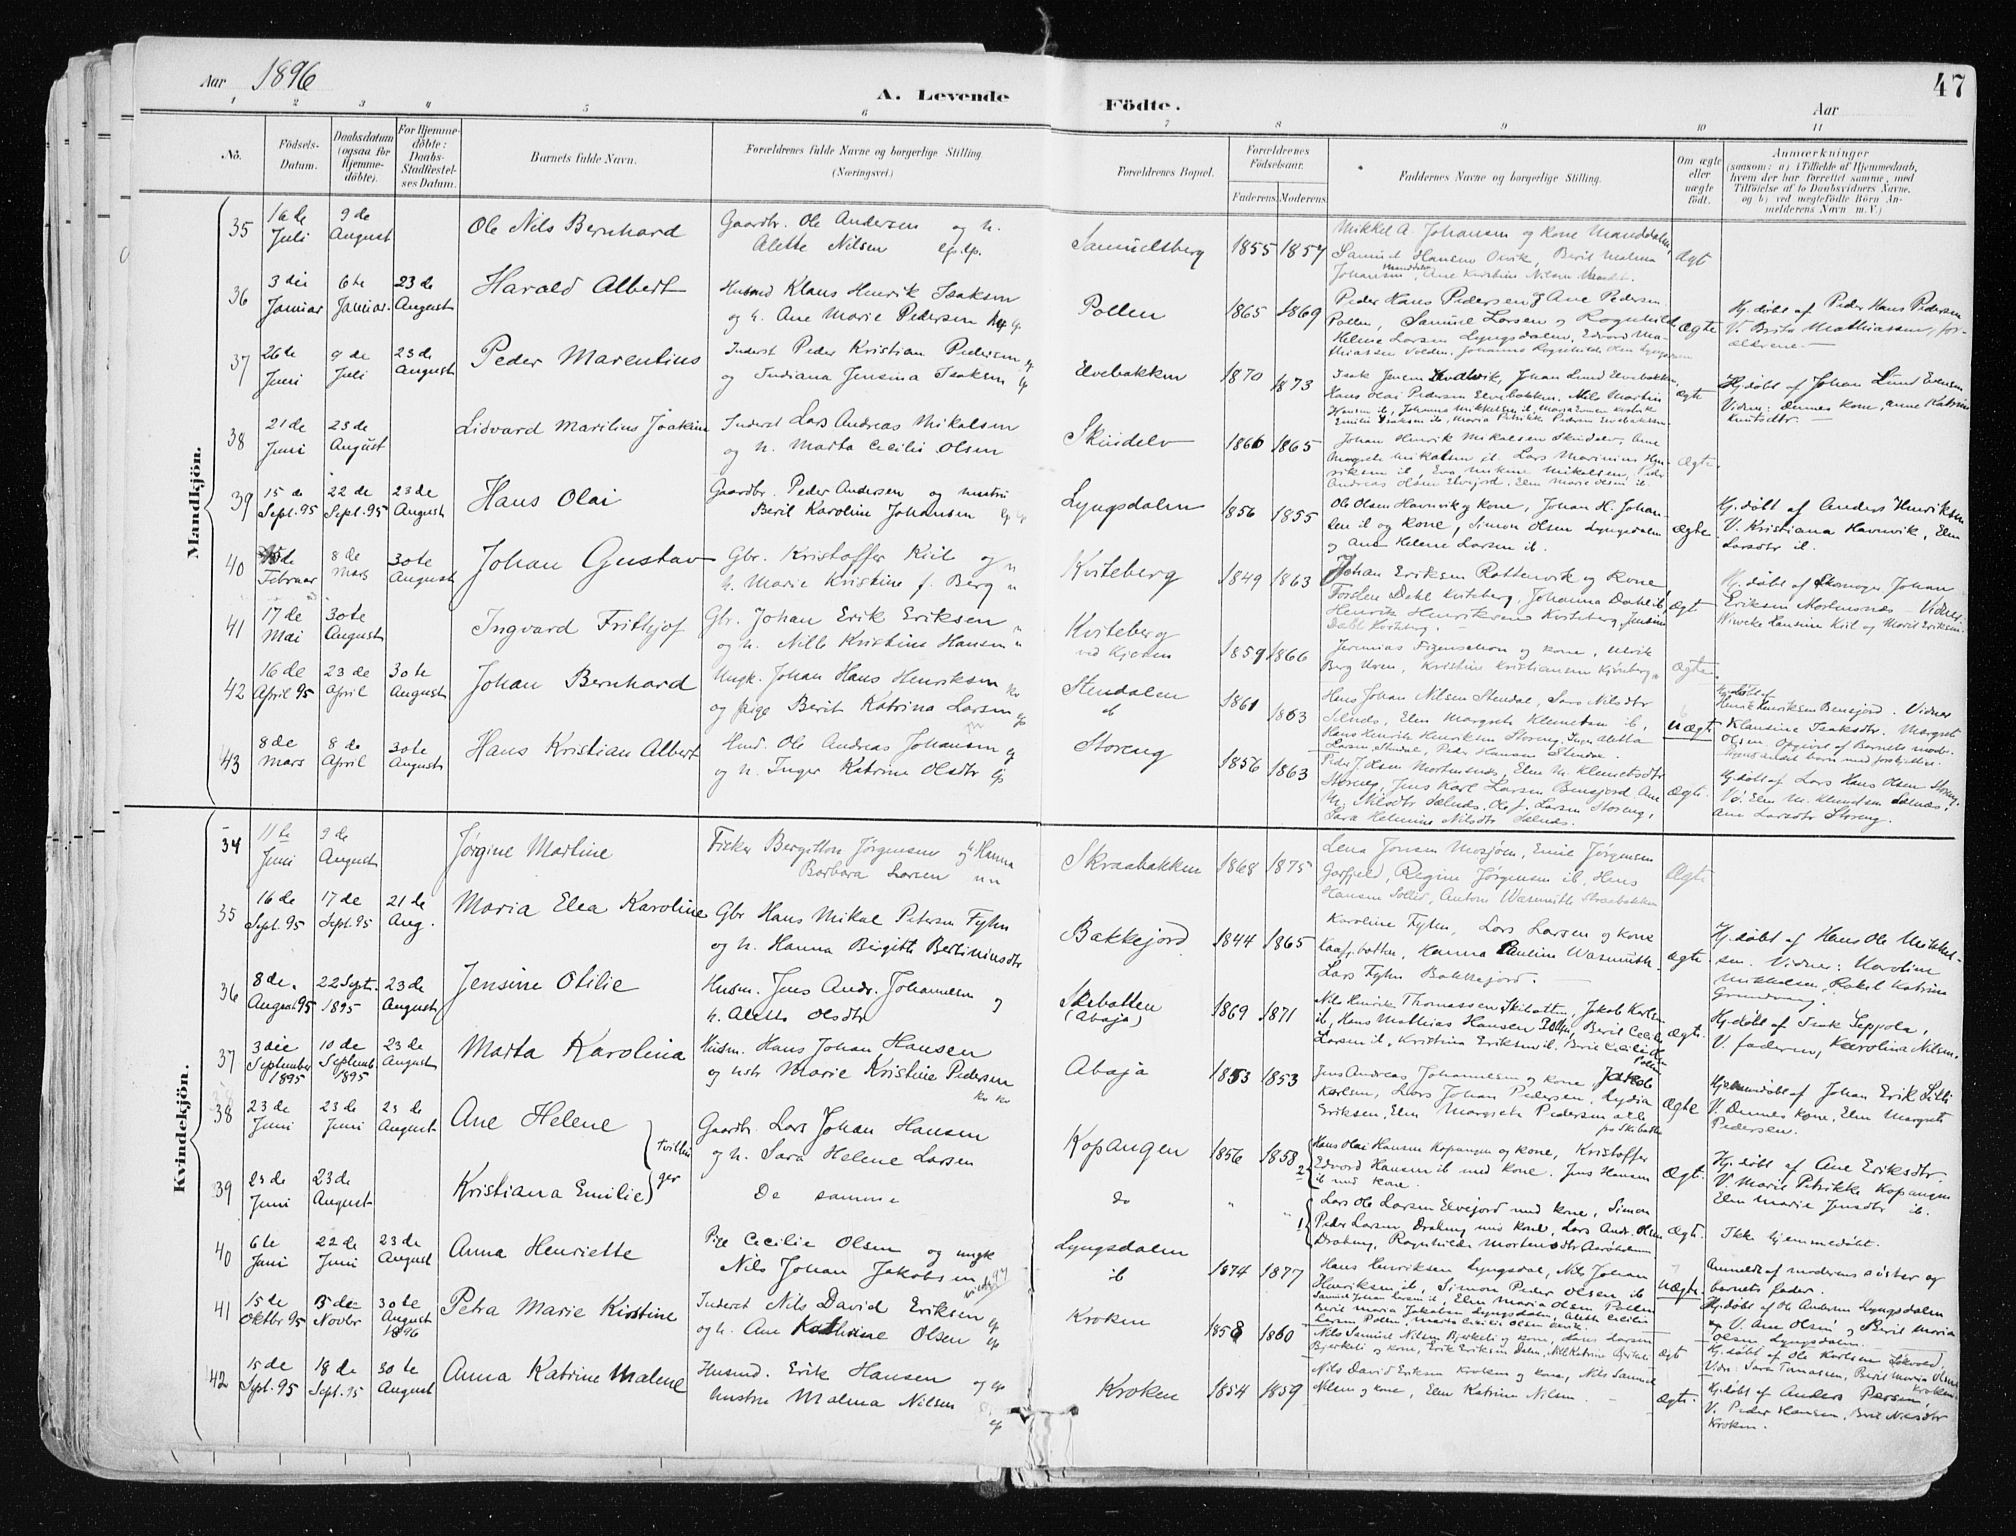 Aar 1896
A. Levende Födte.
Aar
47
1 2 3 4 5 6 7 8 9 10 11
No.
Födsels-Datum.
Daabsdatum (ogsaa for Hjemmedöbte).
For Hjemmedöbte: Daabs-Stadfæstelses Datum.
Barnets fulde Navn.
Forældrenes fulde Navne og borgerlige Stilling (Næringsvei.)
Forældrenes Bopæl.
Forældrenes Födselsaar.
Faderens Moderens
Faddernes Navne og borgerlige Stilling.
Om ægte eller uægte födt.
Anmærkninger
(saasom: a) i Tilfælde af Hjemmedaab, hvem der har forrettet samme, med Tilföielse af to Daabsvidners Navne. og b) ved uægtefödte Börn Anmelderens Navn m. V.)
Mandkjön.
35 16 de Juli 9 de August Ole Nils Bernhard Gaardbr. Ole Andersen og h. Alette Nilsen Samuelsberg 1855 1857 Mikkel A. Johansen og Kone Manddalen, Samuel Hansen Berit Malena Johansen Ane Kirstine Nilsen ægt
36 3 die Januar 6te Januar 23 de August Harald Albert Husmd Klaus Henrik Isaksen og h. Ane Marie Pedersen Pollen 1865 1869 Peder Hans Pedersen & Ane Pedersen Pollen, Samuel Larsen og Ragnhild Helene Larsen Lyngsdalen, Edvard Mathiassen ægte Hj. døbt af Peder Hans Pedersen V. Brita Mathiassen, forældrene
37 26te Juni 9 de Juli 23 de August Peder Marentius Inderst Peder Kristian Pedersen og Indiana Jensina Isaksen Elvebakken 1870 1873 Isak Jensen Johan Lund Elvebakken, Hans Olai Pedersen Elvebakken, Nils Martin Hansen ib, Johanna Mikkelsen ib, ægte Hj. døbt af Johan Lund Vidner: Dennes kone, Anne Katrine Knutsdtr.
38 21 de Juni 23 de August Lidvard Marilius Joakim Inderst Lars Andreas Mikalsen og h. Marta Cecilie Olsen Skindelv 1866 1865 Johan Henrik Mikalsen Skindelv, Ane Margrete Mikalsen ib. Lars Marinius Henriksen ib, Mikalsen, Peder Andreas Olsen Elvejord, Elen Marie Olsen ib ægte
39 15 de Sept. 95 22 de Sept. 95 23 de August Hans Olai Gaardbr. Peder Andersen og hustru Beril Karoline Johansen Lyngsdalen 1856 1855 Ole Olsen Havnvik og kone, Johan H. Johansen il og kone, Simon Olsen Lyngsdalen og Ane Helene Larsen ib. ægte Hj. døbt af Anders Henriksen V. Kristiana Havnvik, Elen Larsdtr il.
40 Februar 8 de Mars 30te August Johan Gustav Gbr. Kristoffer Kiil og h. Marie Kristine f. Berg Kviteberg 1849 1863 Johan Eriksen Rottenvik og Kone Dahl Kviteberg, Johanna Dahl ib, Henrik Henriksen Kviteberg, ægt Hj. døbt af Johan Eriksen Mortensnæs - Vidner: Hansine Kiil og Marit Eriksen
41 17 de Mai 30te August Ingvard Frithjof Gbr. Johan Erik Eriksen og h. Nille Kristine Hansen Kviteberg ved Kjosen 1859 1866 Jeremias og kone, Berg Uren, Kristine Kristiansen ægte
42 16 de April 95 23 de April 30te August Johan Bernhard Ungk. Johan Hans Henriksen og pige Berit Katrina Larsen Stendalen ib 1861 1863 Hans Johan Nilsen Stendal, Lars Nilsdtr Sælnæs, Elen Margrete Klemetsen ib, Hans Henrik Henriksen Storeng, Inger Aletta Larsen, Stendal, Peder Hansen Stendal uægt Hj. døbt af Henrik Henriksen Bensjord. Vidner Klausine Isaksdtr. Margret Olsen. Opgivet af Barnets moder
43 8 de Mars 8 de April 30te August Hans Kristian Albert Husmd. Ole Andreas Johansen og h. Inger Katrine Olsdtr Storeng 1856 1863 Peder J. Olsen Mortensnæs, Elen M. Klemetsdtr Storeng, Jens Karl Larsen Bensjord, Ane M. Nilsdtr Sælnæs, Ole J. Larsen Storeng, Sara Helmine Nilsdtr Sælnæs. ægte Hj. døbt af Lars Hans Olsen Storeng. V. Elen M. Klemetsen Sælnæs, Ane Larsdtr Storeng.
Kvindekjön.
34 11te Juni 9 de August Jørgine Martine Fisker Bergithon Jørgensen og h Hanna Barbara Larsen Skraabakken 1868 1875 Lena Jonsen Mosjøen, Emil Jørgensen Regine Jørgensen ib, Hans Hansen Sollid, Anton Wasmuth Skraabakken ægte
35 16 de Sept. 95 17 de Sept. 95 21 de Aug. Maria Elea Karoline Gbr Hans Mikal Petersen Fyhn og h. Hanna Birgitte Bertiniusdtr Bakkejord 1844 1865 Karoline Fyhn, Lars Larsen og Kone Hanna Pauline Wasmuth. Lars Fyhn Bakkejord. ægte Hj. døbt af Hans Ole Mikkelsen. Vidner: Karoline Mikkelsen, Rakel Katrina Grundvang.
36 8 de August 95 22 Sept. 1895 23 de August Jensine Otilie Husm. Jens Andr. Johannesen og h. Aletta Olsdtr Skibatten (Abaja) 1869 1871 Nils Henrik Thomassen Skibatten, Jakob Karlsen ib, Hans Mathias Hansen Pollen, Berit Cecilie Larsen il, Kristina Eriksen il. ægte Hj. døbt af Isak Seppola, V. faderen, Karolina Nilsen.
37 3 die September 1895 10 de Septemb 1895 23 de August Marta Karolina Husm. Hans Johan Hansen og hstr Marie Kristine Pedersen Abaja 1853 1853 Jens Andreas Johannesen og kone Jakob Karlsen, Lars Johan Pedersen, Lydia Eriksen, Elen Margrete Pedersen alle fra Skibatten ægte Hjemmedøbt af Johan Erik V. Dennes kone, Elen Margrete Pedersen.
38 23 de Juni 23 de Juni 23 de August Ane Helene } tvillinger Gaardbr. Lars Johan Hansen og h. Sara Helene Larsen Kopangen 1856 1858 Hans Olai Hansen Kopangen og kone, Kristoffer Edvard Hansen ib med kone. Jens Hansen ib med kone. ægt. Hj. døbt af Ane Eriksdtr. V. Marie Petrikke Kopangen Elen Marie Jensdtr ib.
39 23 de Juni 23 de August Kristiana Emilie De samme do " " Lars Ole Larsen Elvejord med kone, Simon Peder Larsen, Draberg med kone, Lars Andr. Olsen Draberg, Ragnhilda Mortensdtr ægt. Ikke hjemmedøbt.
40 6te Juni 22 de Juni 23 de August Anna Henriette Pige Cecilie Olsen og ungk Nils Johan Jakobsen Lyngsdalen ib 1874 1877 Hans Henriksen Lyngsdal, Nils Johan Henriksen ib, Simon Peder Olsen ib uægte Anmeldt af moderens søster og barnets fader. Hj. døbt af Ole Andersen Lyngsdalen V. Ane Olsen og Beril Maria Olsen, Lyngsdalen.
41 15 de Oktbr 95 5 de Novbr 30te August 1896 Petra Marie Kirstine Inderst Nils David Eriksen og h. Ane Kathrine Olsen Kroken 1858 1860 Nils Samuel Nilsen Bjerkeli og kone, Hans Larsen Bjerkeli og kone, Erik Eriksen Dalen, Nil Katrine Bjerkeli ægt Hj. døbt af Ole Karlsen Vidn: Sara Tomassen, Beril Maria Olsen Kroken
42 15 de Sept. 95 18 de Sept. 95 30te August Anna Katrine Malene Husmd. Erik Hansen og hustru Malena Nilsen Kroken 1854 1859 Nils David Eriksen Kroken og kone, Nils Samuel Nilsen og kone, Elen Katrine Nilsen ægte. Hj. døbt af Anders Persen, V. Peder Hansen, Beril Nilsdtr Kroken